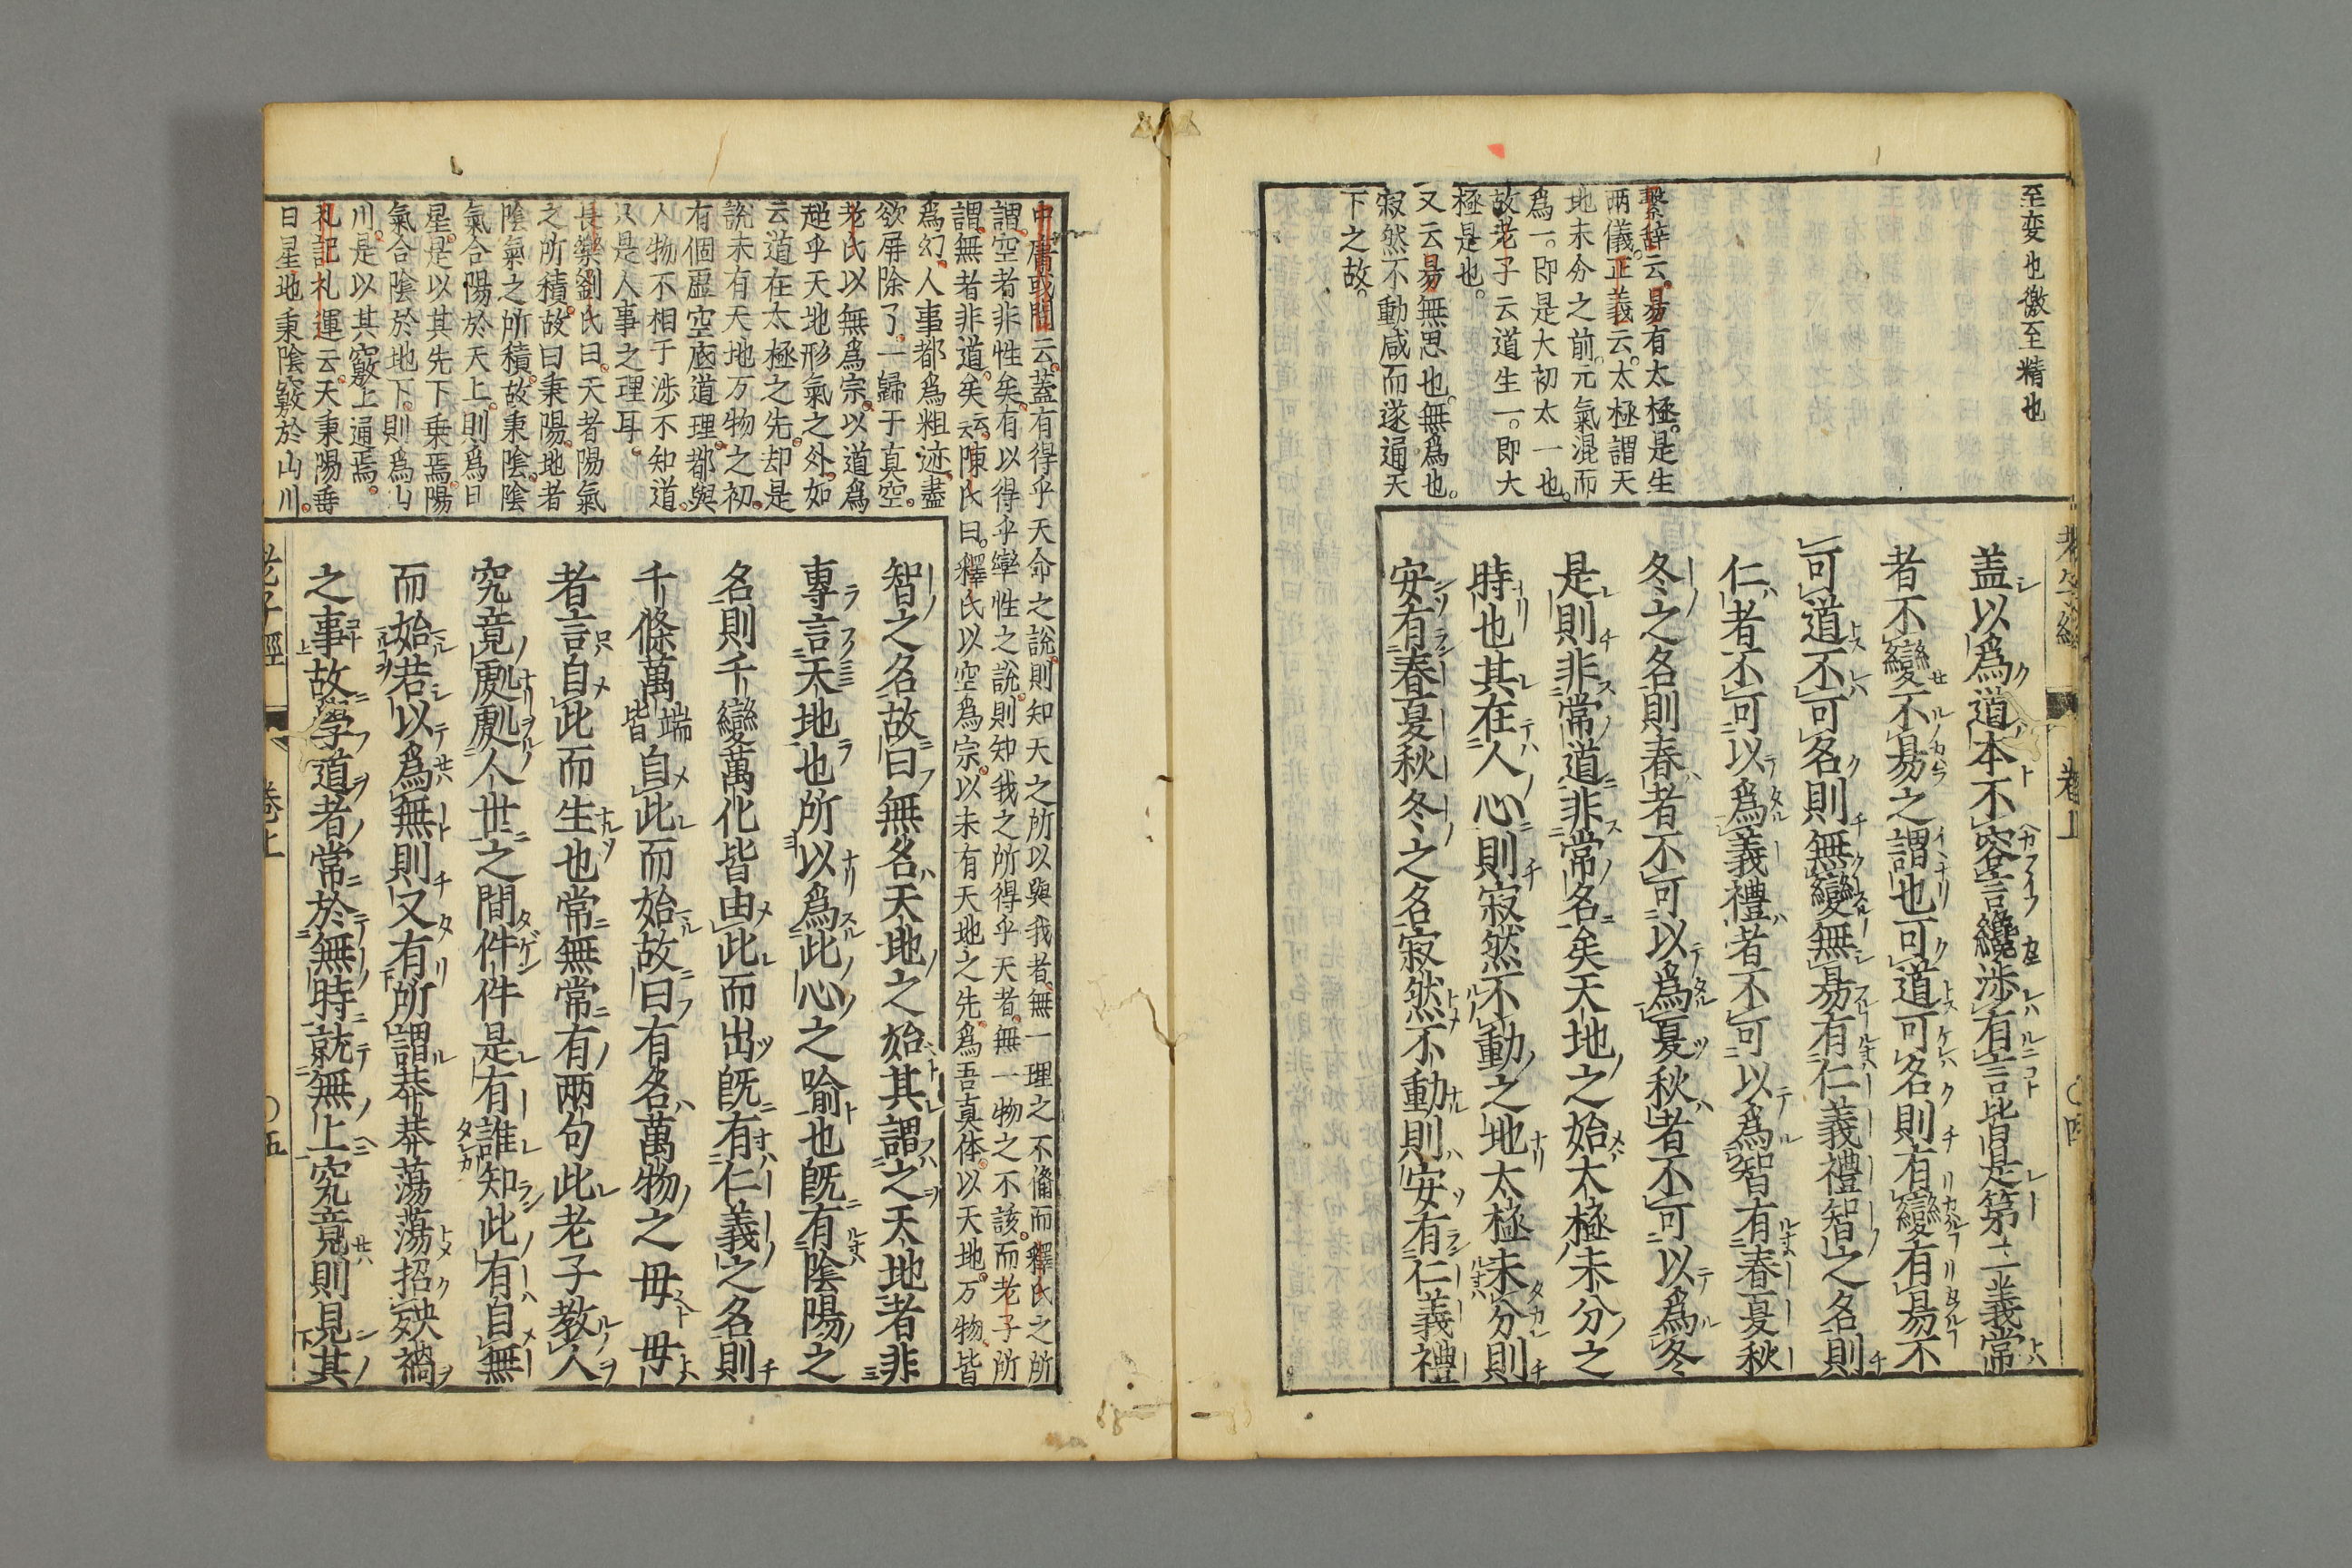 至変也徼至精也
繫辞云易有太極是生
両儀正義云太極謂天
地未分之前元氣混而
爲一即是大初太一也
故老子云道生一即大
極是也
又云易無思也無爲也
寂然不動咸而遂通天
下之故
盖以爲道本不容言纔渉有言皆是第二義常
者不變不易之謂也可道可名則有變有易不
可道不可名則無變無易有仁義禮智之名則
仁者不可以爲義禮者不可以爲智有春夏秋
冬之名則春者不可以爲夏秋者不可以爲冬
是則非常道非常名矣天地之始太極未分之
時也其在人心則寂然不動之地太極未分則
安有春夏秋冬之名寂然不動則安有仁義禮
老子經 卷上 〇四
中庸或問云蓋有得乎天命之説則知天之所以與我者無一理之不備而釋氏之所
謂空者非性矣有以得乎率性之説則知我之所得乎天者無一物之不該而老子所
謂無者非道矣云云陳氏曰釋氏以空爲宗以未有天地之先爲吾真体以天地万物皆
爲幻人事都爲粗迹盡
欲屏除了一歸于真空
老氏以無爲宗以道爲
超乎天地形氣之外如
云道在太極之先却是
説未有天地万物之初
有個虚空底道理都與
人物不相干渉不知道
只是人事之理耳
長樂劉氏曰天者陽氣
之所積故曰秉陽地者
陰氣之所積故秉陰陰
氣合陽於天上則爲日
星是以其先下垂焉陽
氣合陰於地下則爲山
川是以其竅上通焉
礼記礼運云天秉陽垂
日星地秉陰竅於山川
智之名故曰無名天地之始其謂之天地者非
專言天地也所以爲此心之喻也既有陰陽之
名則千變萬化皆由此而出既有仁義之名則
千條萬端皆自此而始故曰有名萬物之母母
者言自此而生也常無常有兩句此老子教人
究竟處處人世之間件件是有誰知此有自無
而始若以爲無則又有所謂莽莽蕩蕩招殃禍
之事故學道者常於無時就無上究竟則見其
老子經 卷上 〇五